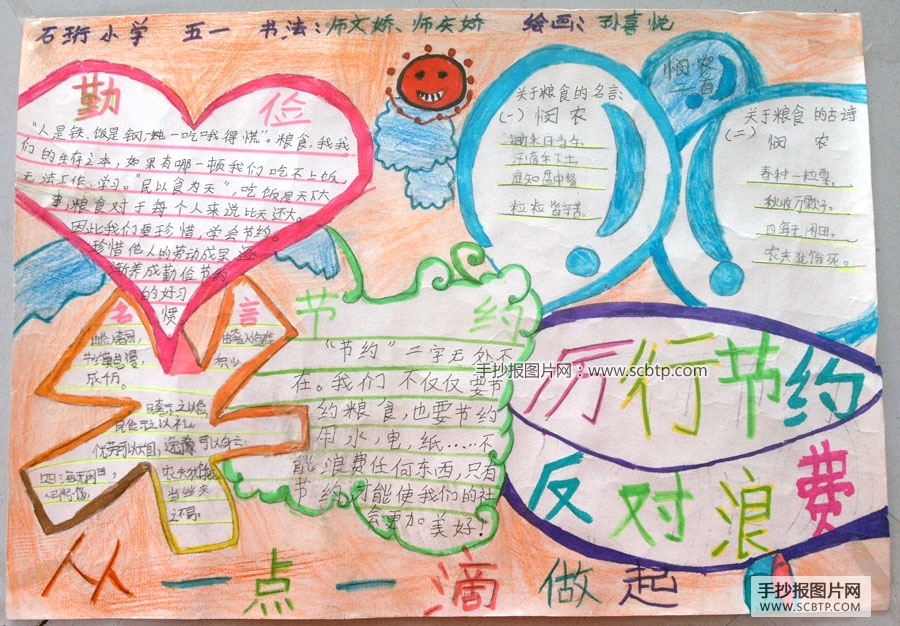 石珩小学 五一 书法:师文娇、师庆娇 绘画:孙喜悦
勤 俭
"人是铁、饭是钢,一吃饿得慌"。粮食,我
们的生存之本,如果有哪一顿我们吃不上饭
无法工作、学习。"民以食为天",吃饭是天大
事,粮食对于每个人来说比天还大。
因此我们要珍惜,学会节约。
珍惜他人的劳动成果,逐
渐养成勤俭节约
的好习
惯
关于粮食的名言:
(一) 悯 农
锄禾日当午,
汗滴禾下土,
谁知盘中餐
粒粒皆辛苦。
悯农
二首
关于粮食的古诗
(二)
悯 农
春种一粒粟,
秋收万颗子。
四海无闲田。
农夫犹饿死。
名 言
积少
成千斤。
节 约
"节约"二字无处不
在。我们不仅仅要节
约粮食,也要节约
用水,电,纸……不
能浪费任何东西,只有
节约才能使我们的社
会更加美好!
手抄报图片网:www.scbtp.com
厉行节约
反对浪费
从一点一滴做起
手抄报图片网
WWW.SCBTP.COM